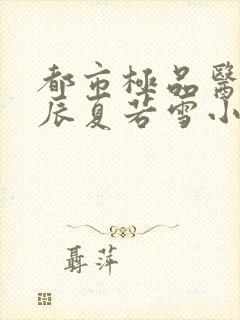 都市極品醫
辰夏若雪小
聶萍